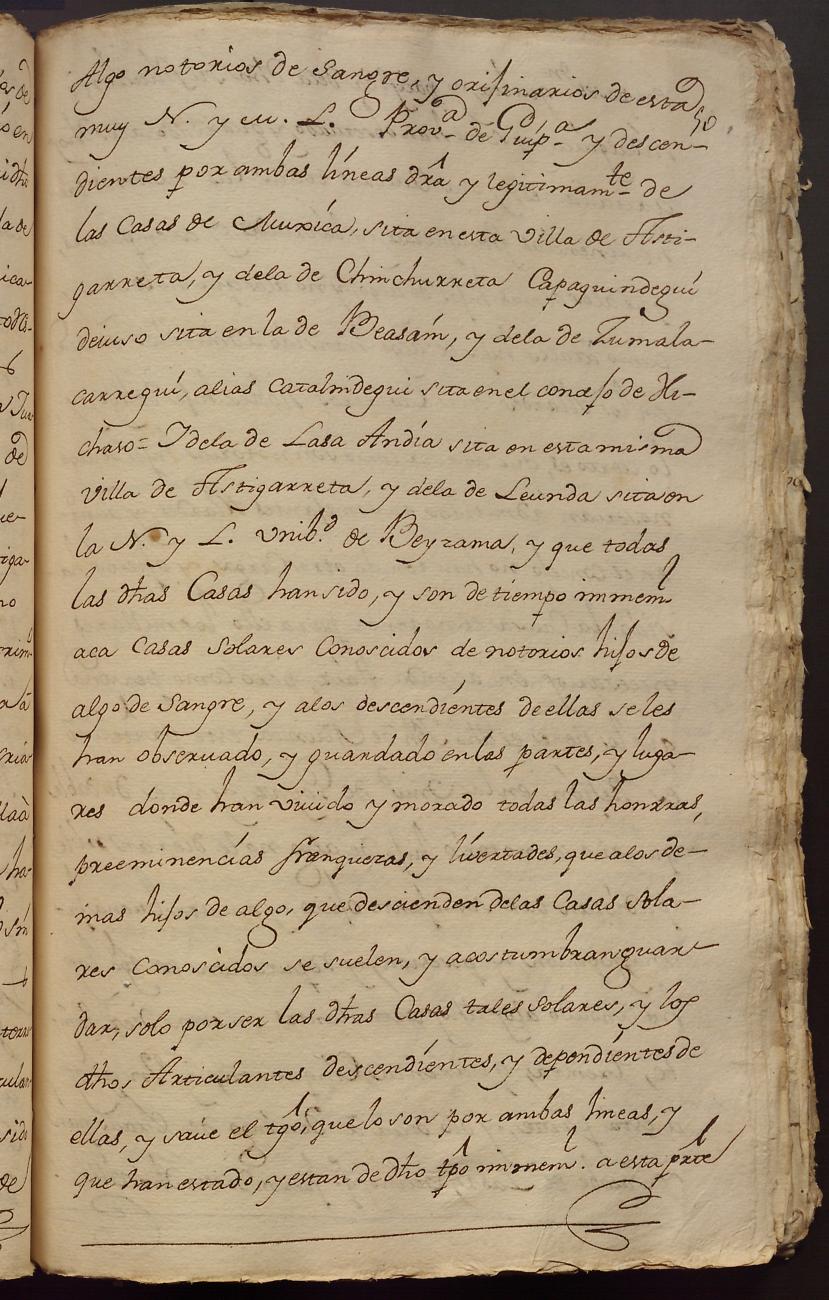 Algo notorios de Sangre, y orijinarios de esta
50
muy N. y M. L. Prov.ª de Guip.ª y descen-
dientes por ambas líneas dra y legitimam.te de
las Casas de Muxíca, sita en esta villa de Asti-
garreta, y dela de Chinchurreta Capaguindeguí
deiuso sita en la de Beasaín, y dela de Zumala-
carreguí, alias Catalindegui sita en el concejo de Hi-
chaso= Y dela de Lasa Andía sita en esta misma
villa de Astigarreta, y dela de Leunda sita en
la N. y L. Vnib.d de Beyzama, y que todas
las dhas Casas han sido, y son de tiempo immeml
aca Casas Solares Conoscidos de notorios hijos de
algo de Sangre, y alos descendíentes de ellas se les
han obseruado, y guardado en las partes, y luga-
res donde han viuido y morado todas las honrras,
preeminencías franquezas, y livertades, que alos de-
mas hijos de algo, que descienden delas Casas Sola-
res Conoscidos se suelen, y acostumbran guar-
dar, solo por ser las dhas Casas tales Solares, y los
dhos Articulantes descendíentes, y dependíentes de
ellas, y saue el tgo, que lo son por ambas lineas, y
que han estado, y estan de dho tpo immeml. a esta prte